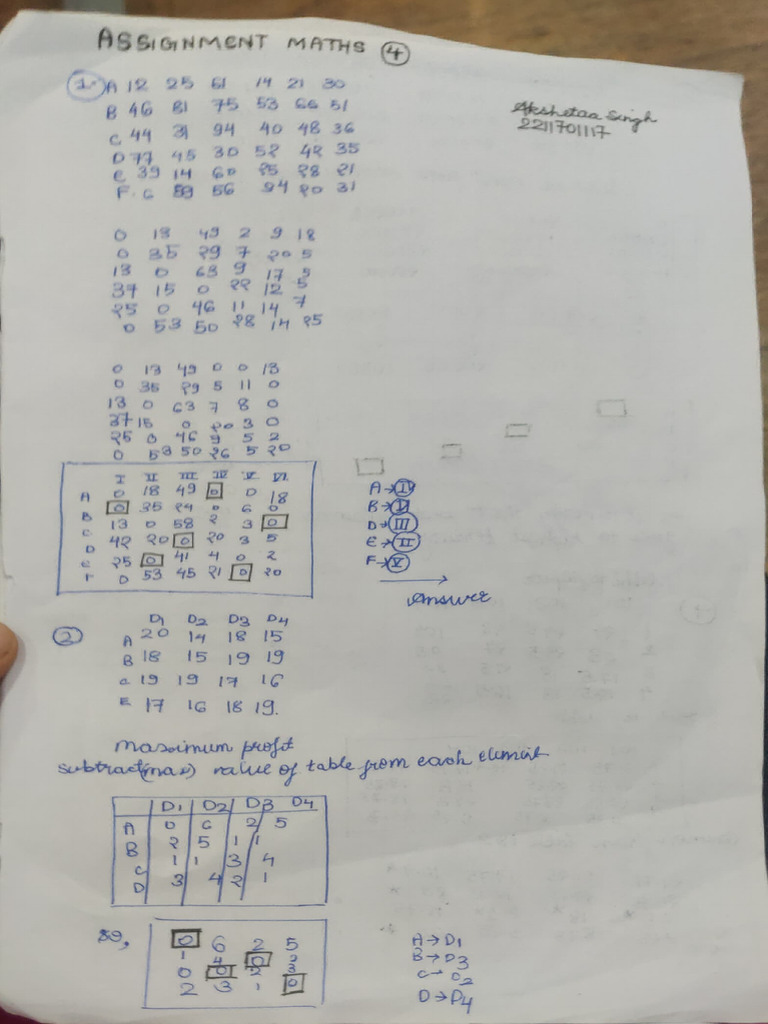 ASSIGNMENT MATHS 4
Akshetaa Singh
2211701117
1. A 12 25 61 14 21 30
B 46 81 75 53 66 51
C 44 31 94 40 48 36
D 77 45 30 52 42 35
E 39 14 60 25 28 21
F. 6 59 56 34 20 31
0 13 49 2 9 18
0 35 29 7 20 5
13 0 63 9 17 5
37 15 0 22 12 5
25 0 46 11 14 7
0 53 50 28 14 25
0 13 49 0 0 13
0 35 29 5 11 0
13 0 63 7 8 0
37 15 0 20 3 0
25 0 46 9 5 2
0 53 50 26 5 20
I II III IV V VI
A 0 18 49 0 0 18
B 0 35 24 0 6 0
C 13 0 58 2 3 0
D 42 20 0 20 3 5
E 25 0 41 4 0 2
F 0 53 45 21 0 20
A→IV
B→VI
D→III
E→II
F→V
Answer
2 D1 D2 D3 D4
A 20 14 18 15
B 18 15 19 19
C 19 19 17 16
E 17 16 18 19.
maximum profit
subtract(max) value of table from each element
D1 D2 D3 D4
A 0 6 2 5
B 2 5 1 1
C 1 1 3 4
D 3 4 2 1
so,
0 6 2 5
1 4 0 2
0 0 2 3
2 3 1 0
A→D1
B→D3
C→D2
D→D4